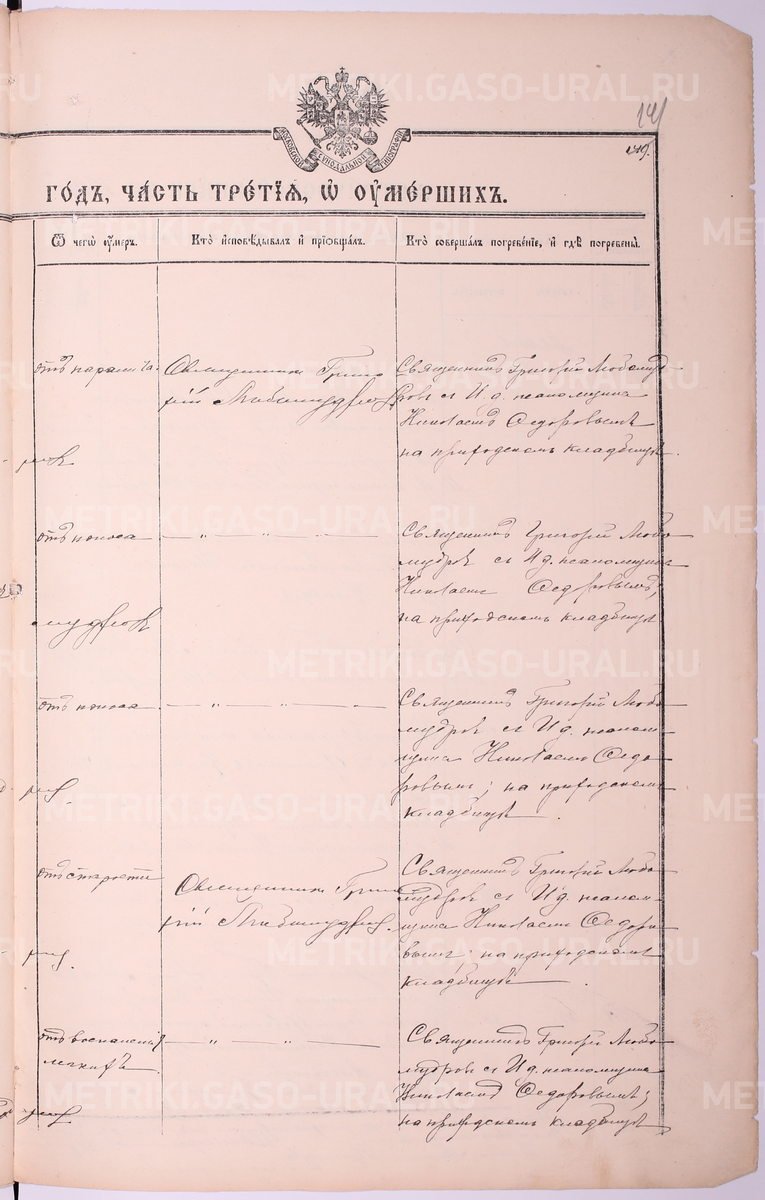 МОСКОВСКОЙ СѴНОДАЛЬНОЙ ТИПОГРАФІИ
141
го́дъ, ча́сть тре́тїѧ, ѡ҆ ᲂу҆ме́ршихъ.
Ѿ чегѡ̀ ᲂу҆́меръ.
Кто̀ и҆сповѣ́дывалъ и҆ прїѡбща́лъ.
Кто̀ соверша́лъ погребе́нїе, и҆ гдѣ̀ погребены̀.
отъ паралича.
Священникъ Григо
рій Любомудровъ
Священникъ Григорій Любомуд
ровъ съ И. д. псаломщика
Николаемъ Ѳедоровымъ
на приходскомъ кладбищѣ.
отъ поноса
— „ — „ —
Священникъ Григорій Любо
мудровъ съ И. д. псаломщика
Николаемъ Ѳедоровымъ;
на приходскомъ кладбищѣ
мудровъ
отъ поноса
— „ — „ —
Священникъ Григорій Любо
мудровъ съ И. д. псалом
щика Николаемъ Ѳедо
ровымъ; на приходскомъ
кладбищѣ.
отъ старости
Священникъ Григо
рій Любомудровъ.
Священникъ Григорій Любо
мудровъ съ И. д. псалом
щика Николаемъ Ѳедоро
вымъ; на приходскомъ
кладбищѣ.
отъ воспаленія
легкихъ.
— „ — „ —
Священникъ Григорій Любо
мудровъ съ И. д. псаломщика
Николаемъ Ѳедоровымъ;
на приходскомъ кладбищѣ
METRIKI.GASO-URAL.RU